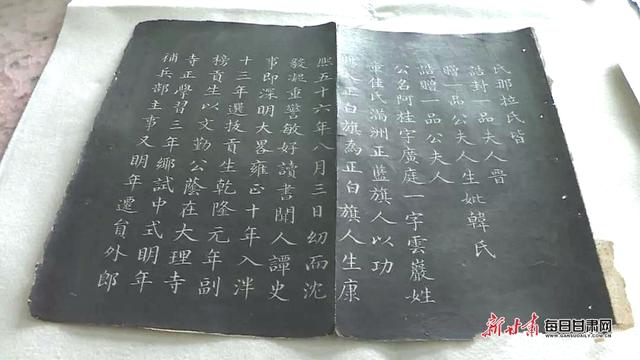 氏那拉氏皆
誥封一品夫人晋
贈一品公夫人生妣韓氏
誥贈一品公夫人
公名阿桂字廣庭一字雲巖姓
章佳氏滿洲正藍旗人以功
入正白旗為正白旗人生康
熙五十六年八月三日幼而沈
毅凝重警敏好讀書聞人譚史
事即深明大畧雍正十年入泮
十三年選拔貢生乾隆元年副
榜貢生以文勤公蔭在大理寺
寺正學習三年鄉試中式明年
補兵部主事又明年遷員外郎
新甘肃 每日甘肃网